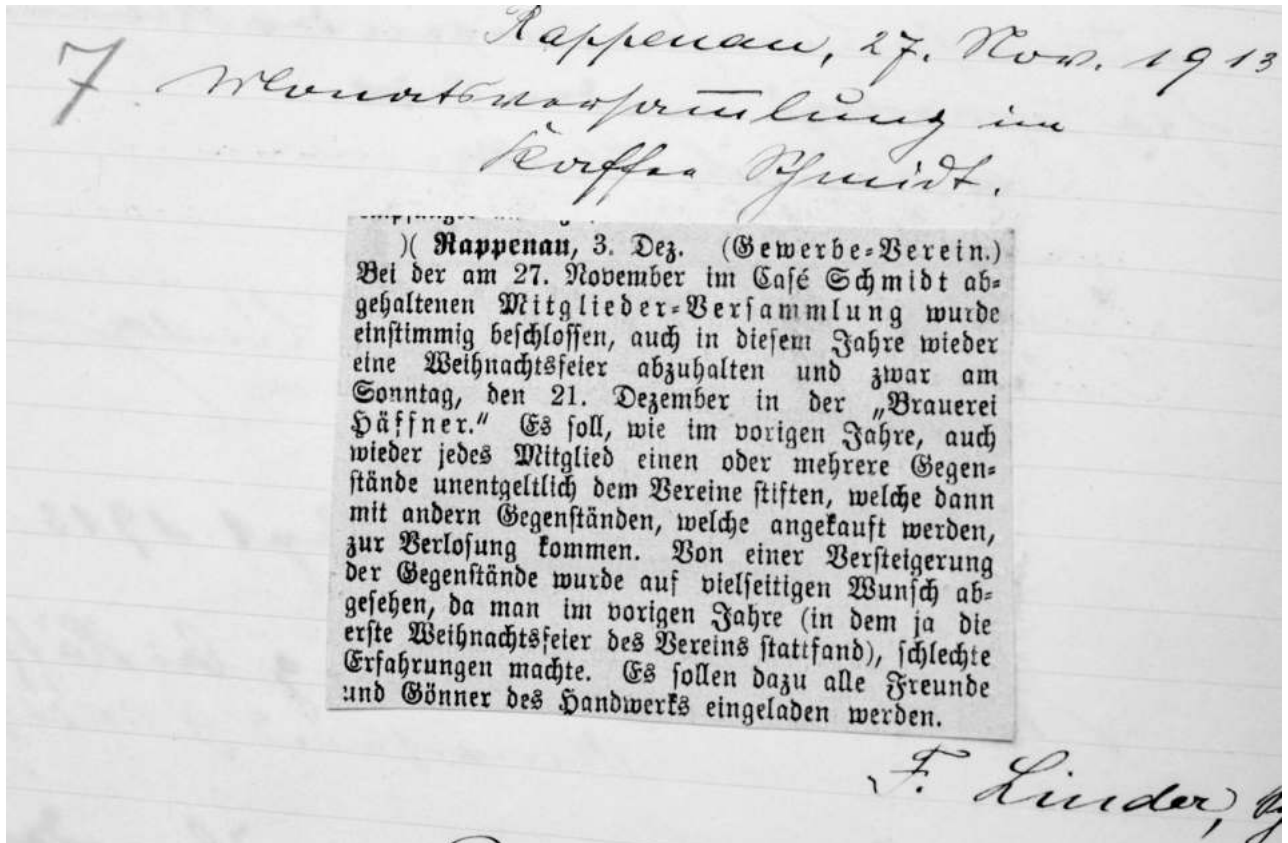 Rappenau, 27. Nov. 1913
7 Monatsversam̄lung im
Kaffee Schmidt.
)( Rappenau, 3. Dez. (Gewerbe-Verein.)
Bei der am 27. November im Café Schmidt ab-
gehaltenen Mitglieder-Versammlung wurde
einstimmig beschlossen, auch in diesem Jahre wieder
eine Weihnachtsfeier abzuhalten und zwar am
Sonntag, den 21. Dezember in der „Brauerei
Häffner.“ Es soll, wie im vorigen Jahre, auch
wieder jedes Mitglied einen oder mehrere Gegen-
stände unentgeltlich dem Vereine stiften, welche dann
mit andern Gegenständen, welche angekauft werden,
zur Verlosung kommen. Von einer Versteigerung
der Gegenstände wurde auf vielseitigen Wunsch ab-
gesehen, da man im vorigen Jahre (in dem ja die
erste Weihnachtsfeier des Vereins stattfand), schlechte
Erfahrungen machte. Es sollen dazu alle Freunde
und Gönner des Handwerks eingeladen werden.
F. Linder,